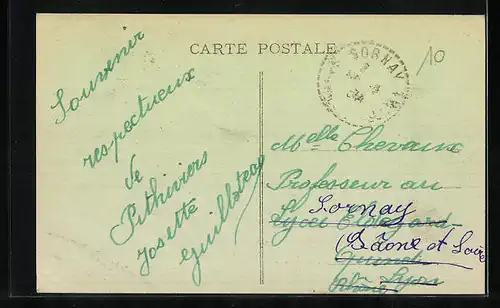 CARTE POSTALE
10
SORNAY
Souvenir
respectueux
de
Pithiviers
Josette
Guilloteau
Melle Chevaux
Professeur au
Lycée
Sornay
(Saône et Loire
Lyon
Rhône